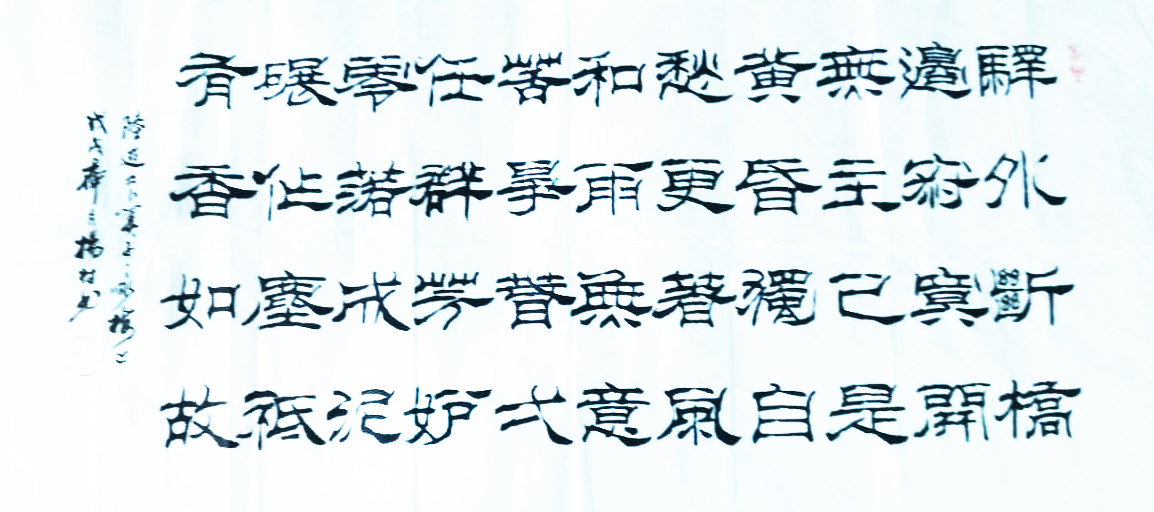 驛外斷橋
邊寂寞開
無主已是
黃昏獨自
愁更著風
和雨無意
苦爭春弌
任群芳妒
零落成泥
碾作塵祗
有香如故
陸遊卜算子詠梅
戊戌月楊村书